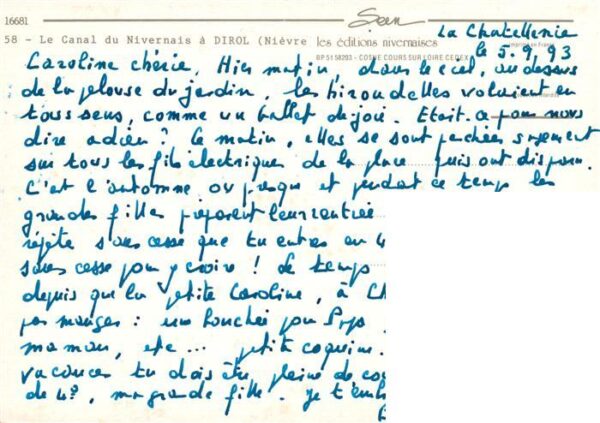 16681
Sean
La Chatellenie
58 - Le Canal du Nivernais à DIROL (Nièvre
les éditions nivernaises
le 5.9.93
BP 51 58203 - COSNE COURS SUR LOIRE CEDEX
Caroline chérie, Hier matin, dans le ciel, au dessus
de la pelouse du jardin, les hirondelles volaient en
tous sens, comme un ballet de joie. Etait-ce pour nous
dire adieu? Ce matin, elles se sont perchées sagement
sur tous les fils électriques de la place puis ont disparu.
C'est l'automne ou presque et pendant ce temps les
grandes filles préparent leur rentrée
répète sans cesse que tu entres en 4
sans cesse pour y croire! Le temps
depuis que la petite Caroline, à Ch
pas manger: une bouchée pour Papa
maman, etc... petite coquine.
vacances tu dois être pleine de cou
de 4e, ma grande fille. Je t'emb